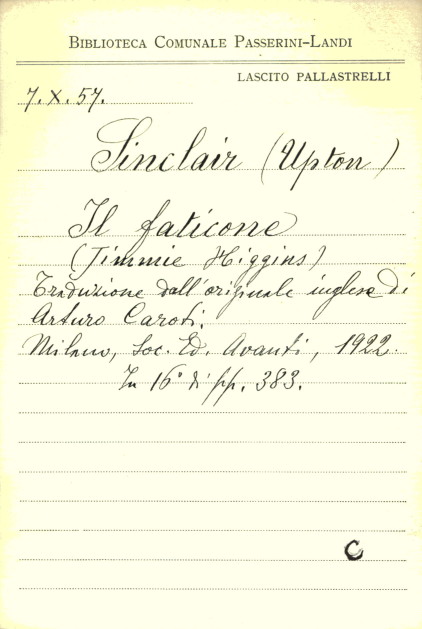 BIBLIOTECA COMUNALE PASSERINI-LANDI
LASCITO PALLASTRELLI
7.X.57.
Sinclair (Upton)
Il faticone
(Jimmie Higgins)
Traduzione dall'originale inglese di
Arturo Caroti.
Milano, Soc. Ed. Avanti, 1922.
In 16° di pp. 383.
C